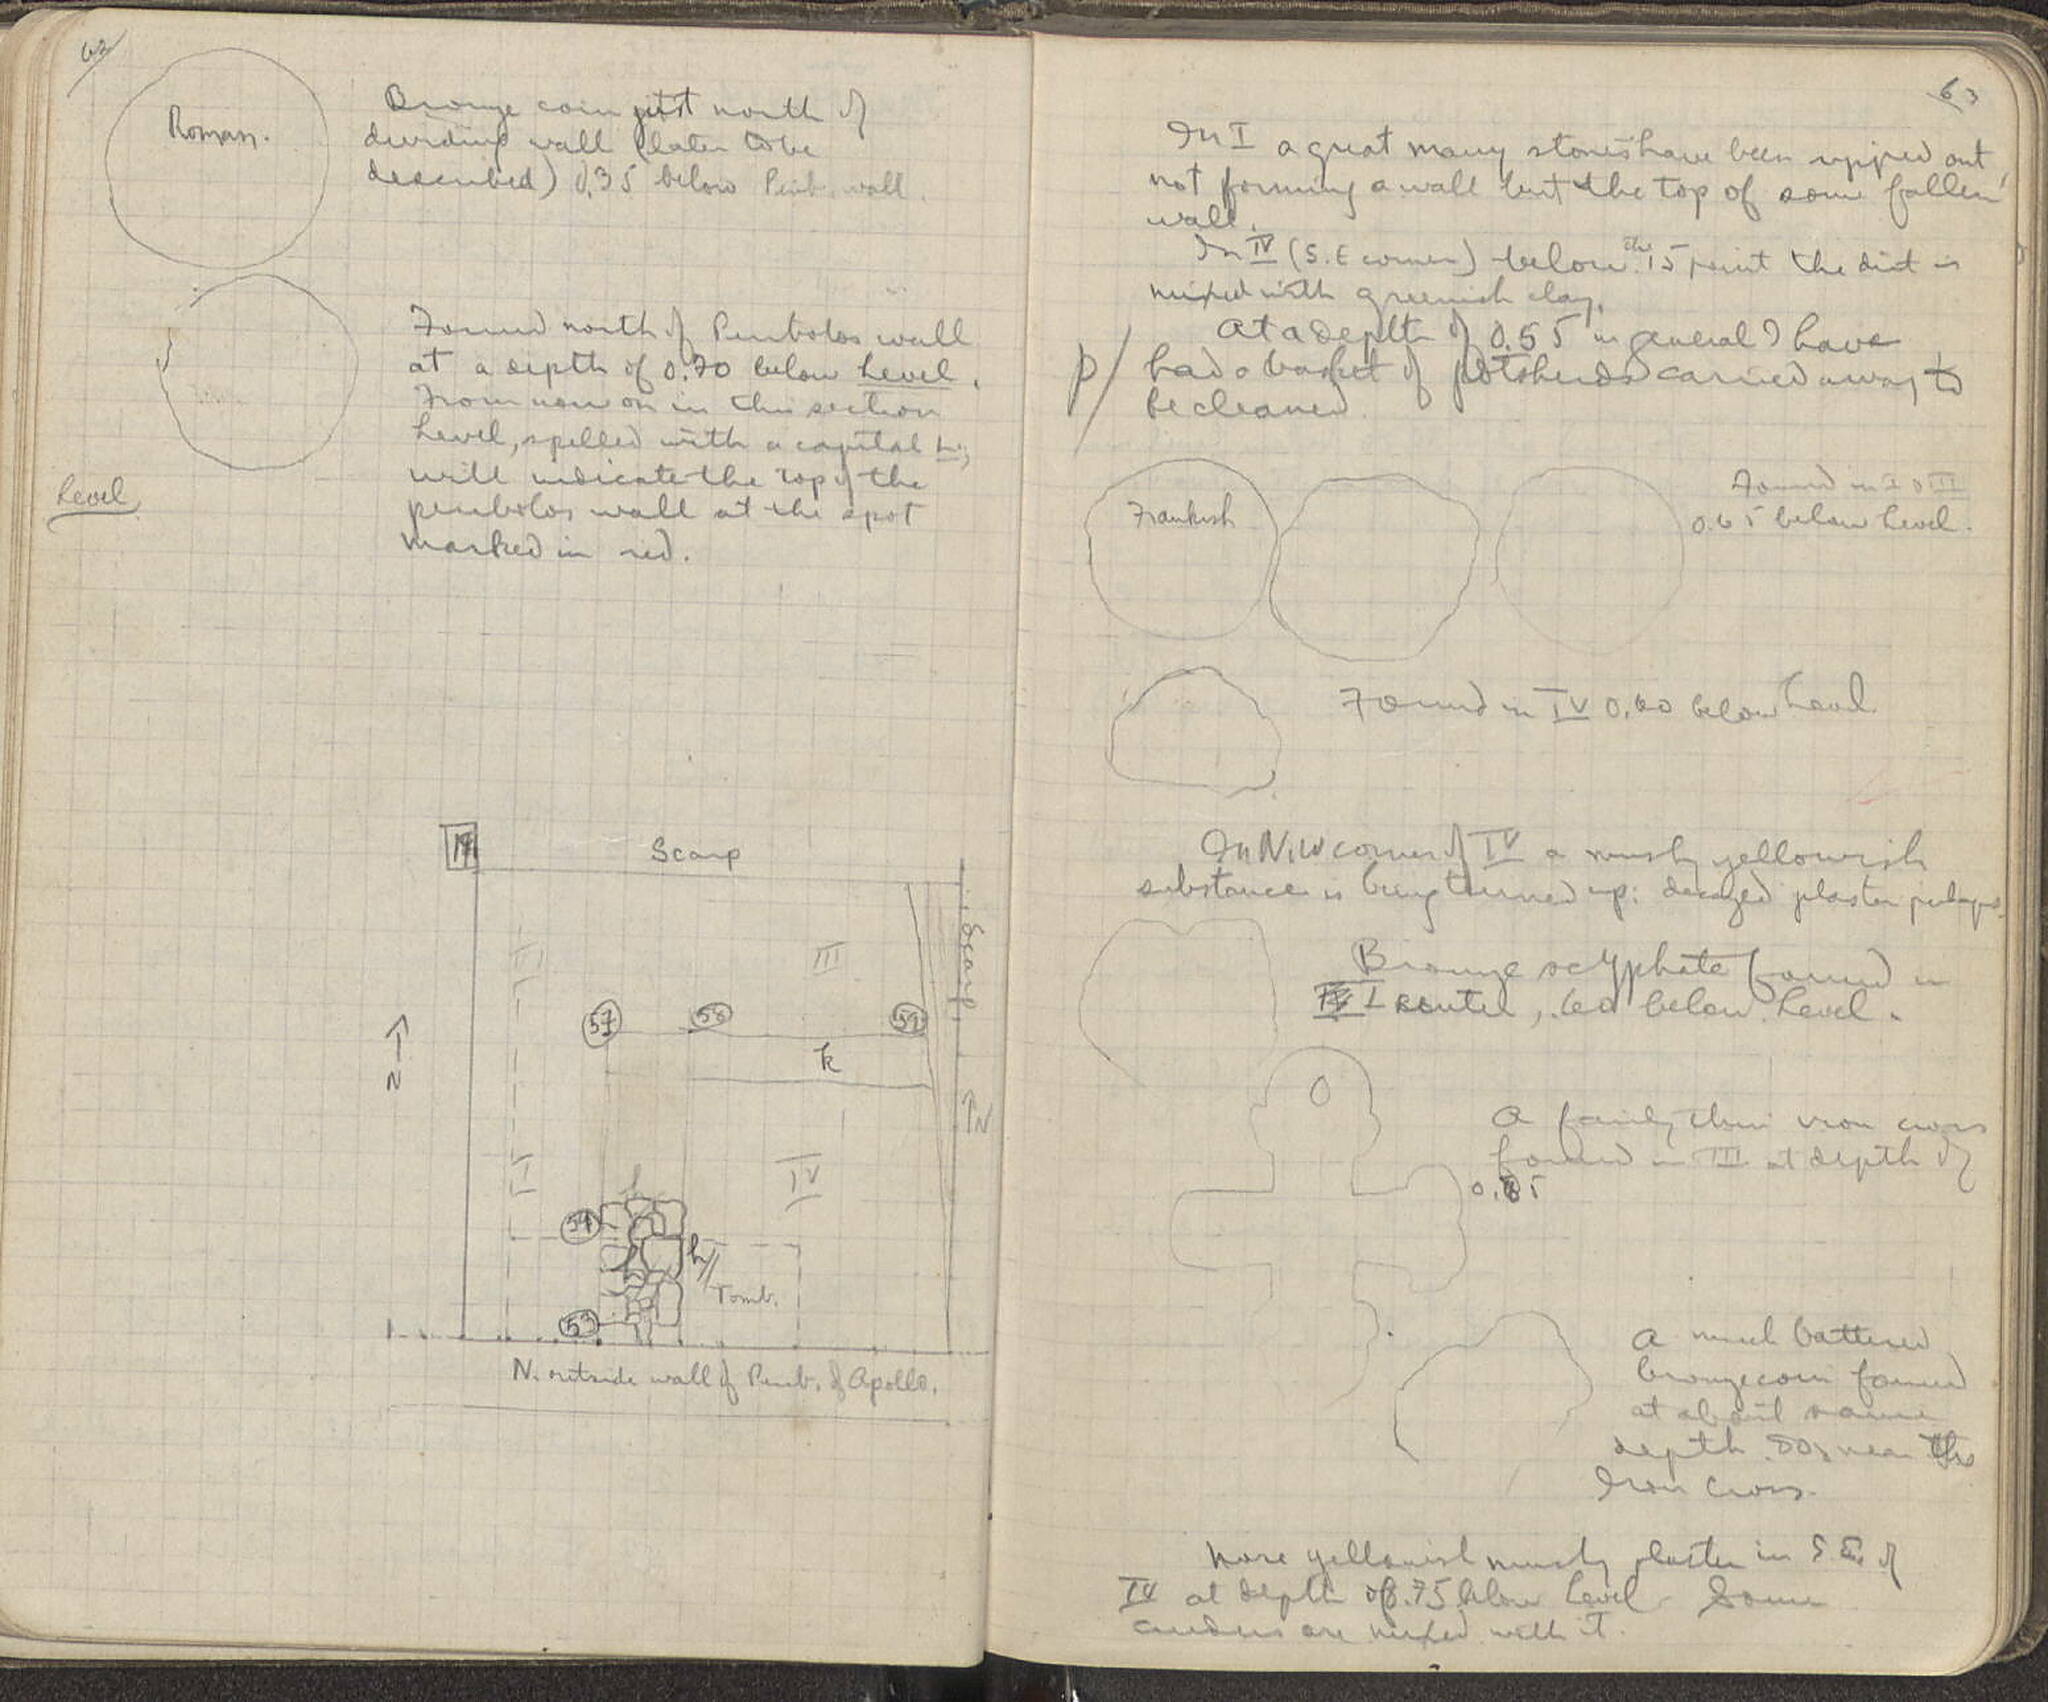 62
Roman.
Bronze coin just north of
dividing wall (later to be
described) 0.35 below Perib. wall.
Found north of Peribolos wall
at a depth of 0.70 below Level.
From now on in this section
Level, spelled with a capital L,
will indicate the top of the
peribolos wall at the spot
marked in red.
Level
Scarp
Scarp
III
57
58
59
k
N
N
I
IV
54
h
Tomb.
53
N. outside wall of Perib. of Apollo.
63
In I a great many stones have been ripped out,
not forming a wall but the top of some fallen
wall.
In IV (S.E corner) below the .15 point the dirt is
mixed with greenish clay.
At a depth of 0.55 in general I have
had a basket of potsherds carried away to
be cleaned.
p/
Frankish
Found in I III
0.65 below Level.
Found in IV 0.60 below Level
In N.W corner of IV a musty yellowish
substance is being turned up: decayed plaster perhaps
Bronze scyphate found in
I center, .60 below Level.
A fairly thin iron cross
found in III at depth of
A much battered
bronze coin found
at about same
depth .80, near the
Iron Cross.
More yellowish musty plaster in S.E. of
IV at depth of .75 below Level. Some
cinders are mixed with it.